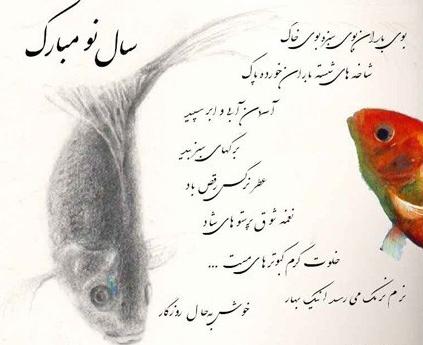 سال نو مبارک
بوی باران بوی سبزه بوی خاک
شاخه های شسته باران خورده پاک
آسمان آبی و ابر سپید
برگهای سبز بید
عطر نرگس رقص باد
نغمه شوق پرستو های شاد
خلوت گرم کبوتر های مست ...
نرم نرمک می رسد اینک بهار
خوش به حال روزگار